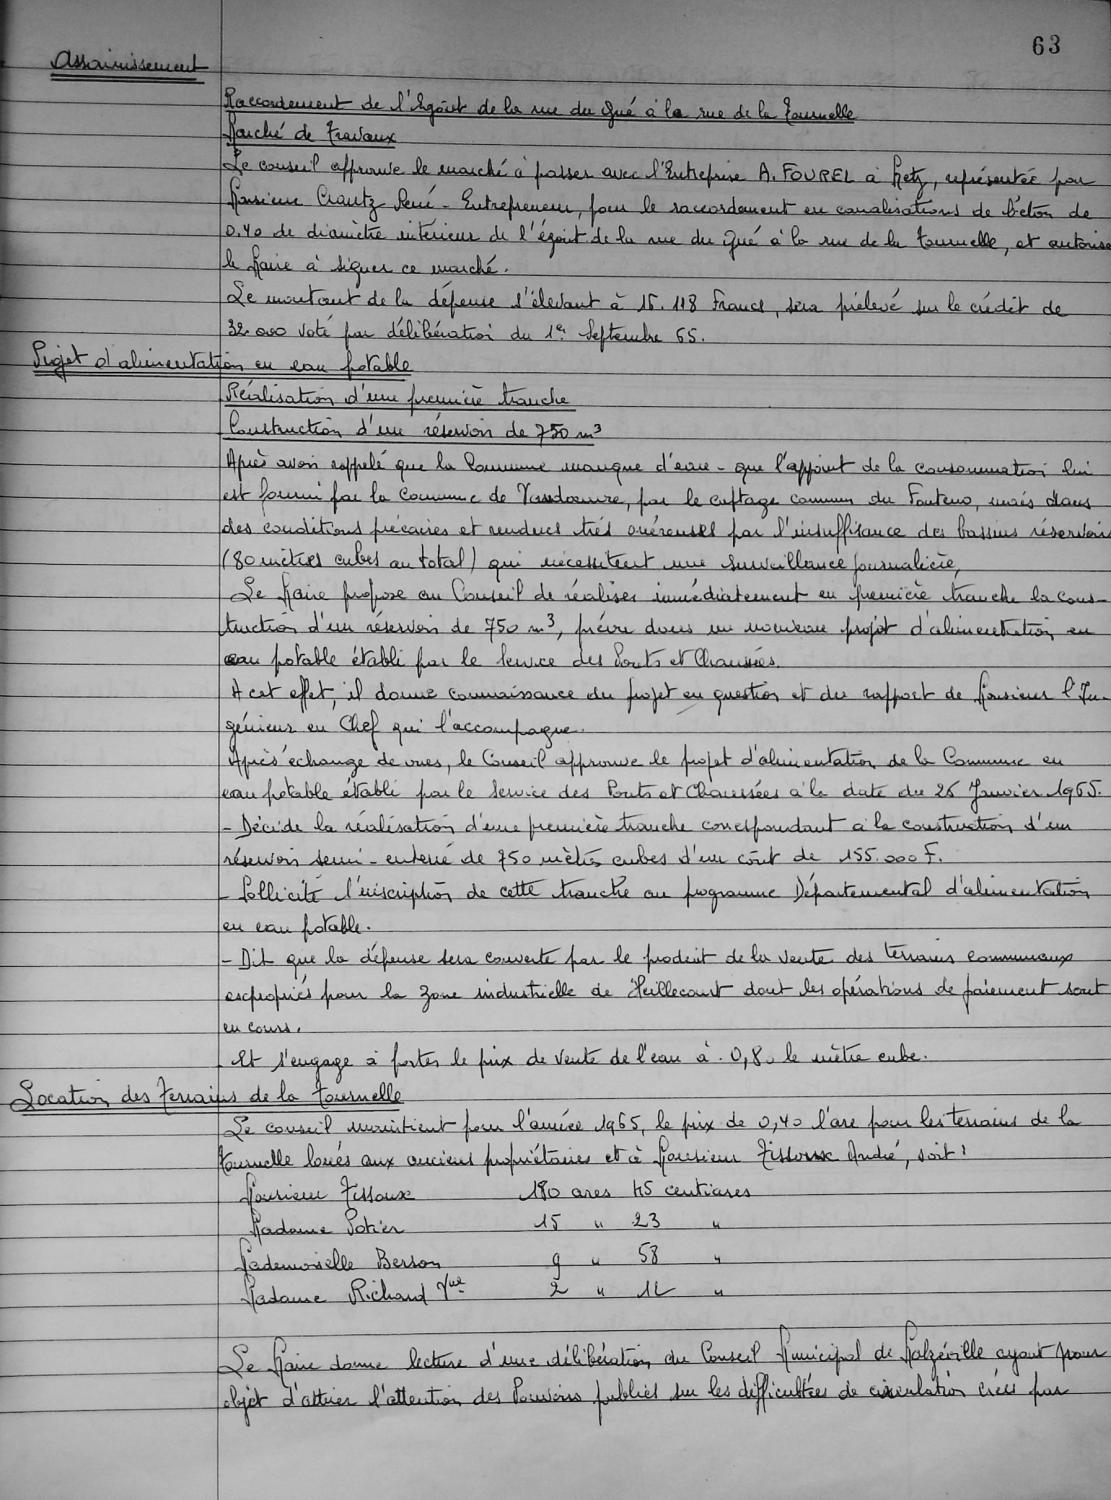 63
Assainissement
Raccordement de l'Egoût de la rue du Gué à la rue de la Tournelle
Marché de Travaux
Le conseil approuve le marché à passer avec l'Entreprise A. FOUREL à Metz, représentée par
Monsieur Crantz René - Entrepreneur, pour le raccordement en canalisations de béton de
0,40 de diamètre intérieur de l'égoût de la rue du Gué à la rue de la Tournelle, et autorise
le Maire à signer ce marché.
Le montant de la dépense s'élevant à 15.118 Francs, sera prélevé sur le crédit de
32.000 voté par délibération du 1er Septembre 65.
Projet d'alimentation en eau potable
Réalisation d'une première tranche
Construction d'un réservoir de 750 m3
Après avoir rappelé que la Commune manque d'eau - que l'appoint de la consommation lui
est fourni par la Commune de Vandoeuvre, par le captage commun du Fonteno, mais dans
des conditions précaires et rendues très onéreuses par l'insuffisance des bassins réservoirs
(80 mètres cubes au total) qui nécessitent une surveillance journalière,
Le Maire propose au Conseil de réaliser immédiatement en première tranche la cons-
truction d'un réservoir de 750 m3, prévu dans un nouveau projet d'alimentation en
eau potable établi par le Service des Ponts et Chaussées.
A cet effet, il donne connaissance du projet en question et du rapport de Monsieur l'In-
génieur en Chef qui l'accompagne.
Après échange de vues, le Conseil approuve le projet d'alimentation de la Commune en
eau potable établi par le Service des Ponts et Chaussées à la date du 26 Janvier 1965.
- Décide la réalisation d'une première tranche correspondant à la construction d'un
réservoir semi-enterré de 750 mètres cubes d'un coût de 155.000 F.
- Sollicite l'inscription de cette tranche au programme Départemental d'alimentation
en eau potable.
- Dit que la dépense sera couverte par le produit de la vente des terrains communaux
expropriés pour la zone industrielle de Heillecourt dont les opérations de paiement sont
en cours.
- Et s'engage à porter le prix de vente de l'eau à 0,80 le mètre cube.
Location des Terrains de la Tournelle
Le conseil maintient pour l'année 1965, le prix de 0,40 l'are pour les terrains de la
Tournelle loués aux anciens propriétaires et à Monsieur Tissoux André, soit :
Monsieur Tissoux 180 ares 45 centiares
Madame Potier 15 " 23 "
Mademoiselle Berson 9 " 58 "
Madame Richard Vve 2 " 12 "
Le Maire donne lecture d'une délibération du Conseil Municipal de Malzéville ayant pour
objet d'attirer l'attention des Pouvoirs publics sur les difficultées de circulation créées par